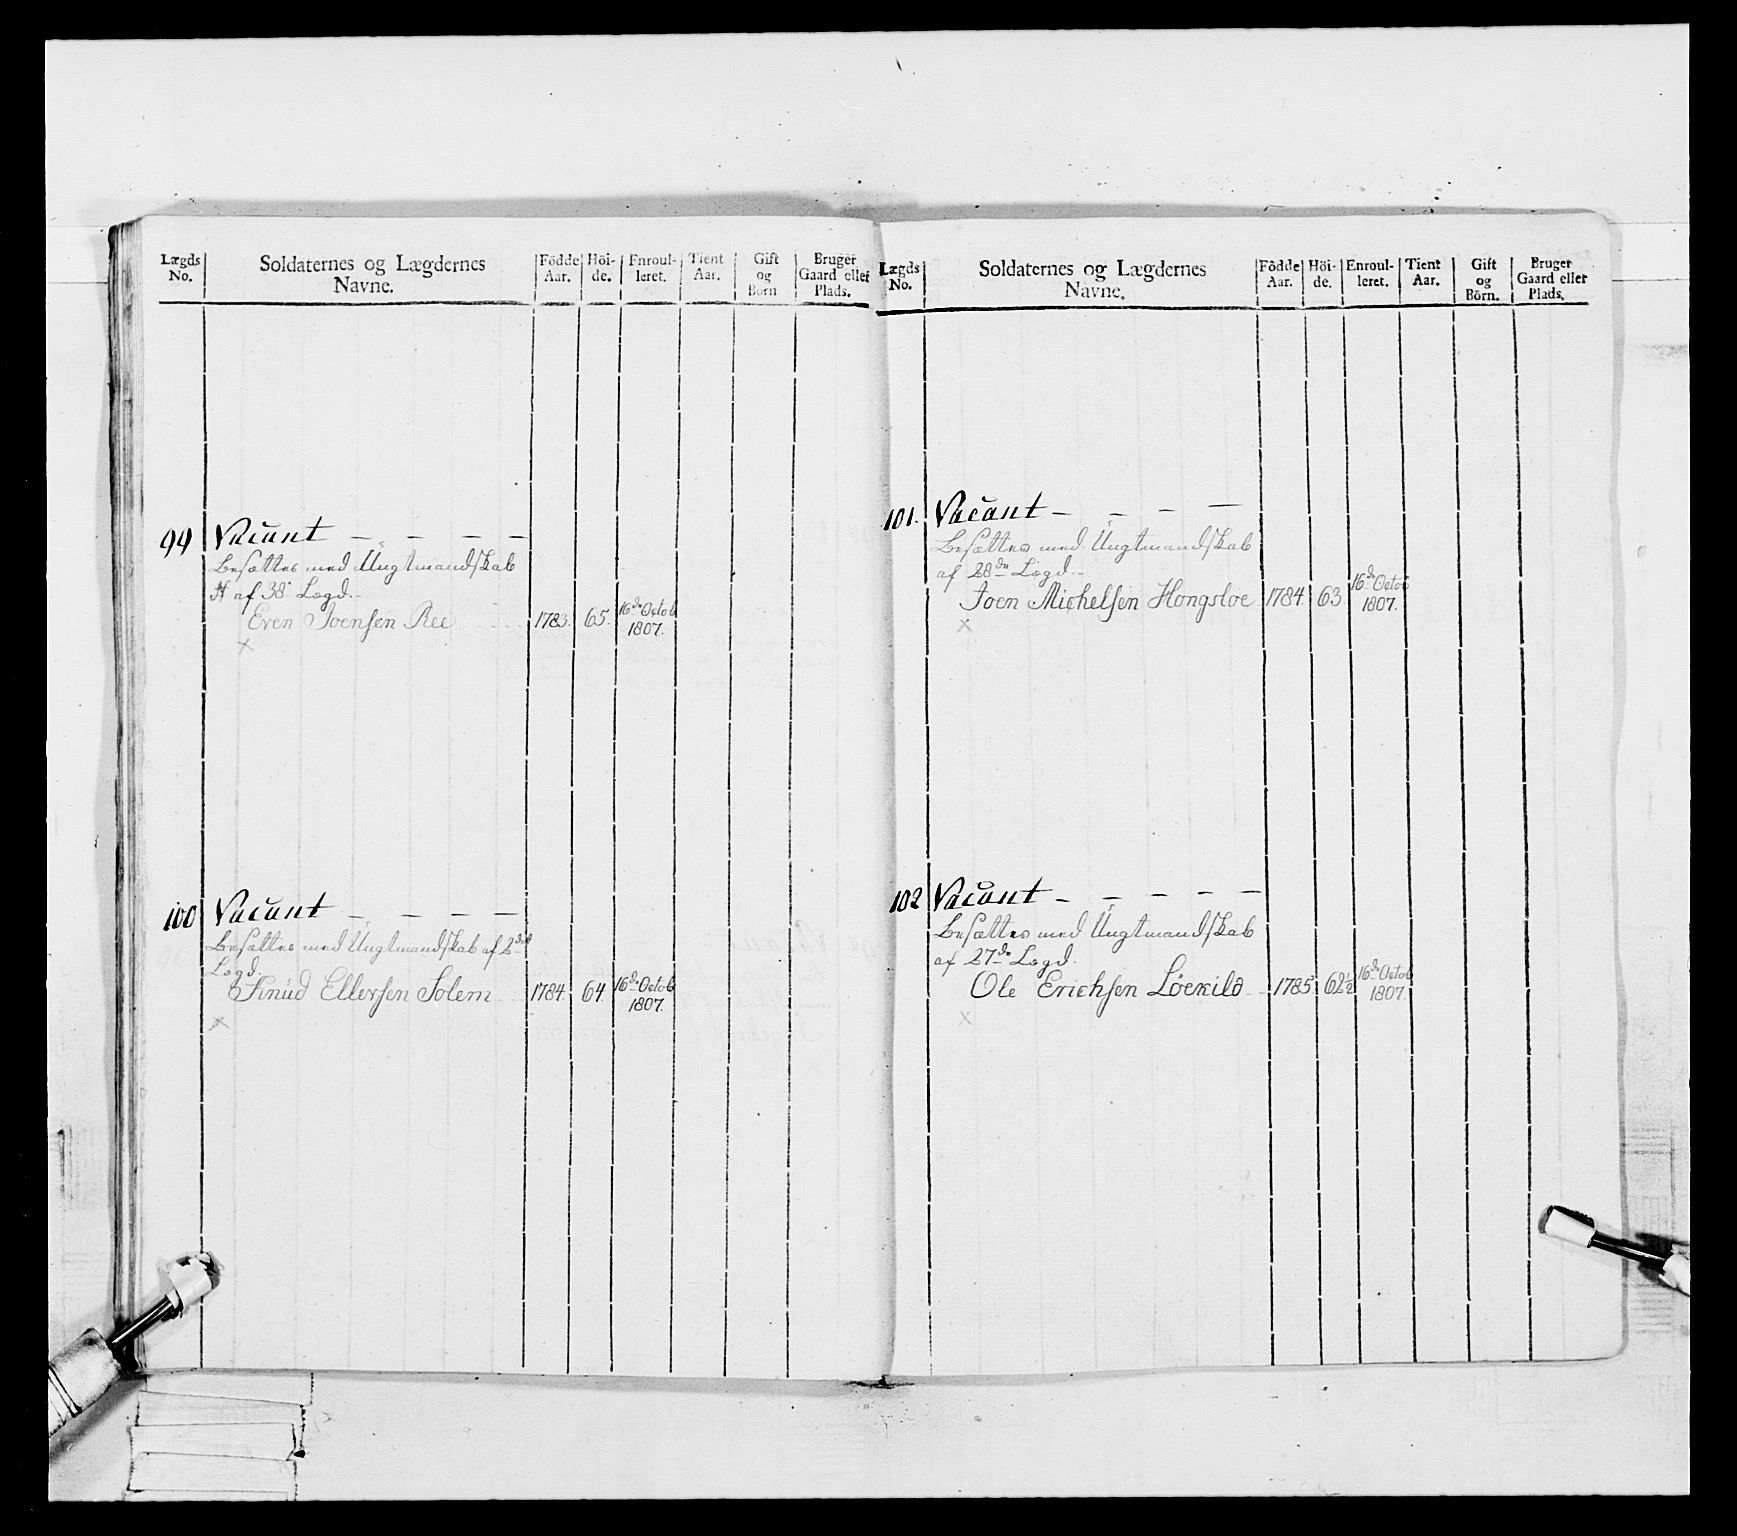 Lægds No.
Soldaternes og Lægdernes Navne.
Födde Aar.
Höi-de.
Enroul-leret.
Tient Aar.
Gift og Börn
Bruger Gaard eller Plads.
99 Vacant — — — —
Besættes med Ungtmandskab
af 38 Lægd.
Even Joensen Ree 1783. 65. 16de Octob 1807.
×
100 Vacant — — — —
Besættes med Ungtmandskab af 2den
Lægd.
Knud Ellersen Solem 1784. 64. 16de Octob 1807.
×
Lægds No.
Soldaternes og Lægdernes Navne.
Födde Aar.
Höi-de.
Enroul-leret.
Tient Aar.
Gift og Börn.
Bruger Gaard eller Plads.
101. Vacant — — — —
Besættes med Ungtmandskab
af 28de Lægd.
Joen Michelsen Hongsloe 1784. 63 16de Octob 1807.
×
102 Vacant — — — — —
Besættes med Ungtmandskab
af 27de Lægd.
Ole Erichsen Löekild 1785 62½ 16de Octob 1807.
×